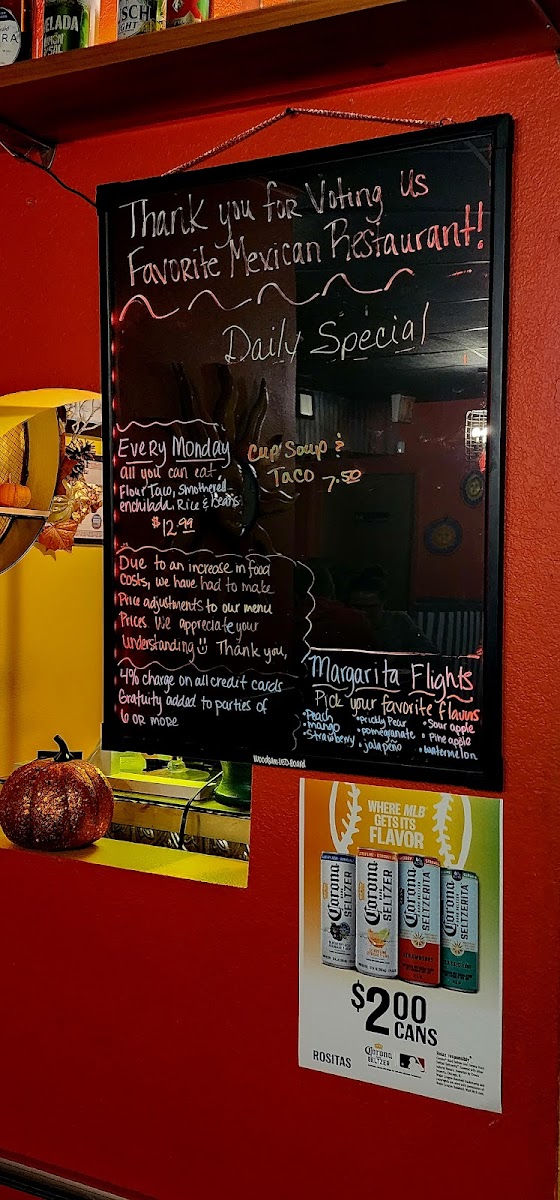 ELADA
Thank you for Voting us
Favorite Mexican Restaurant!
Daily Special
Every Monday
all you can eat
Flour Taco, Smothered
enchilada, Rice & Beans
$12.99
Cup Soup &
Taco 7.50
Due to an increase in food
costs, we have had to make
Price adjustments to our menu
Prices. We appreciate your
Understanding Thank you,
4% charge on all credit cards
Gratuity added to parties of
6 or more
Margarita Flights
Pick your favorite flavors
• Peach • Prickly Pear • Sour apple
• mango • pomegranate • Pineapple
• Strawberry • jalapeño • watermelon
WHERE MLB
GETS ITS
FLAVOR
Corona SELTZER
Corona SELTZER
Corona SELTZERITA
Corona SELTZERITA
$2.00
CANS
ROSITAS
Corona
SELTZER